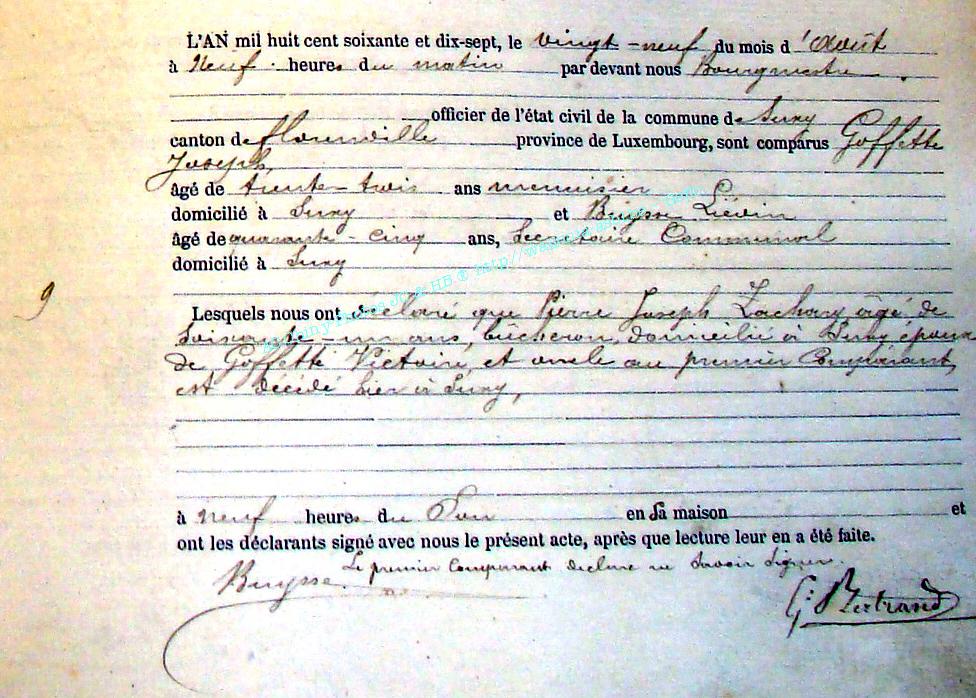 L'AN mil huit cent soixante et dix-sept, le vingt-neuf du mois d'Août
à Neuf heures du matin par devant nous Bourgmestre
officier de l'état civil de la commune de Suxy
canton de florenville province de Luxembourg, sont comparus Goffette
Joseph,
âgé de trente-trois ans menuisier
domicilié à Suxy et Buysse Liévin
âgé de quarante-cinq ans, Secretaire Communal
domicilié à Suxy
9
Lesquels nous ont déclaré que Pierre Joseph Zachary âgé de
Soixante-un ans, bûcheron, domicilié à Suxy époux
de Goffette Victoire, et oncle au premier Comparant,
est décédé hier à Suxy,
à neuf heures du Soir en sa maison et
ont les déclarants signé avec nous le présent acte, après que lecture leur en a été faite.
Le premier Comparant declare ne Savoir Signer.
Buysse
G: Bertrand